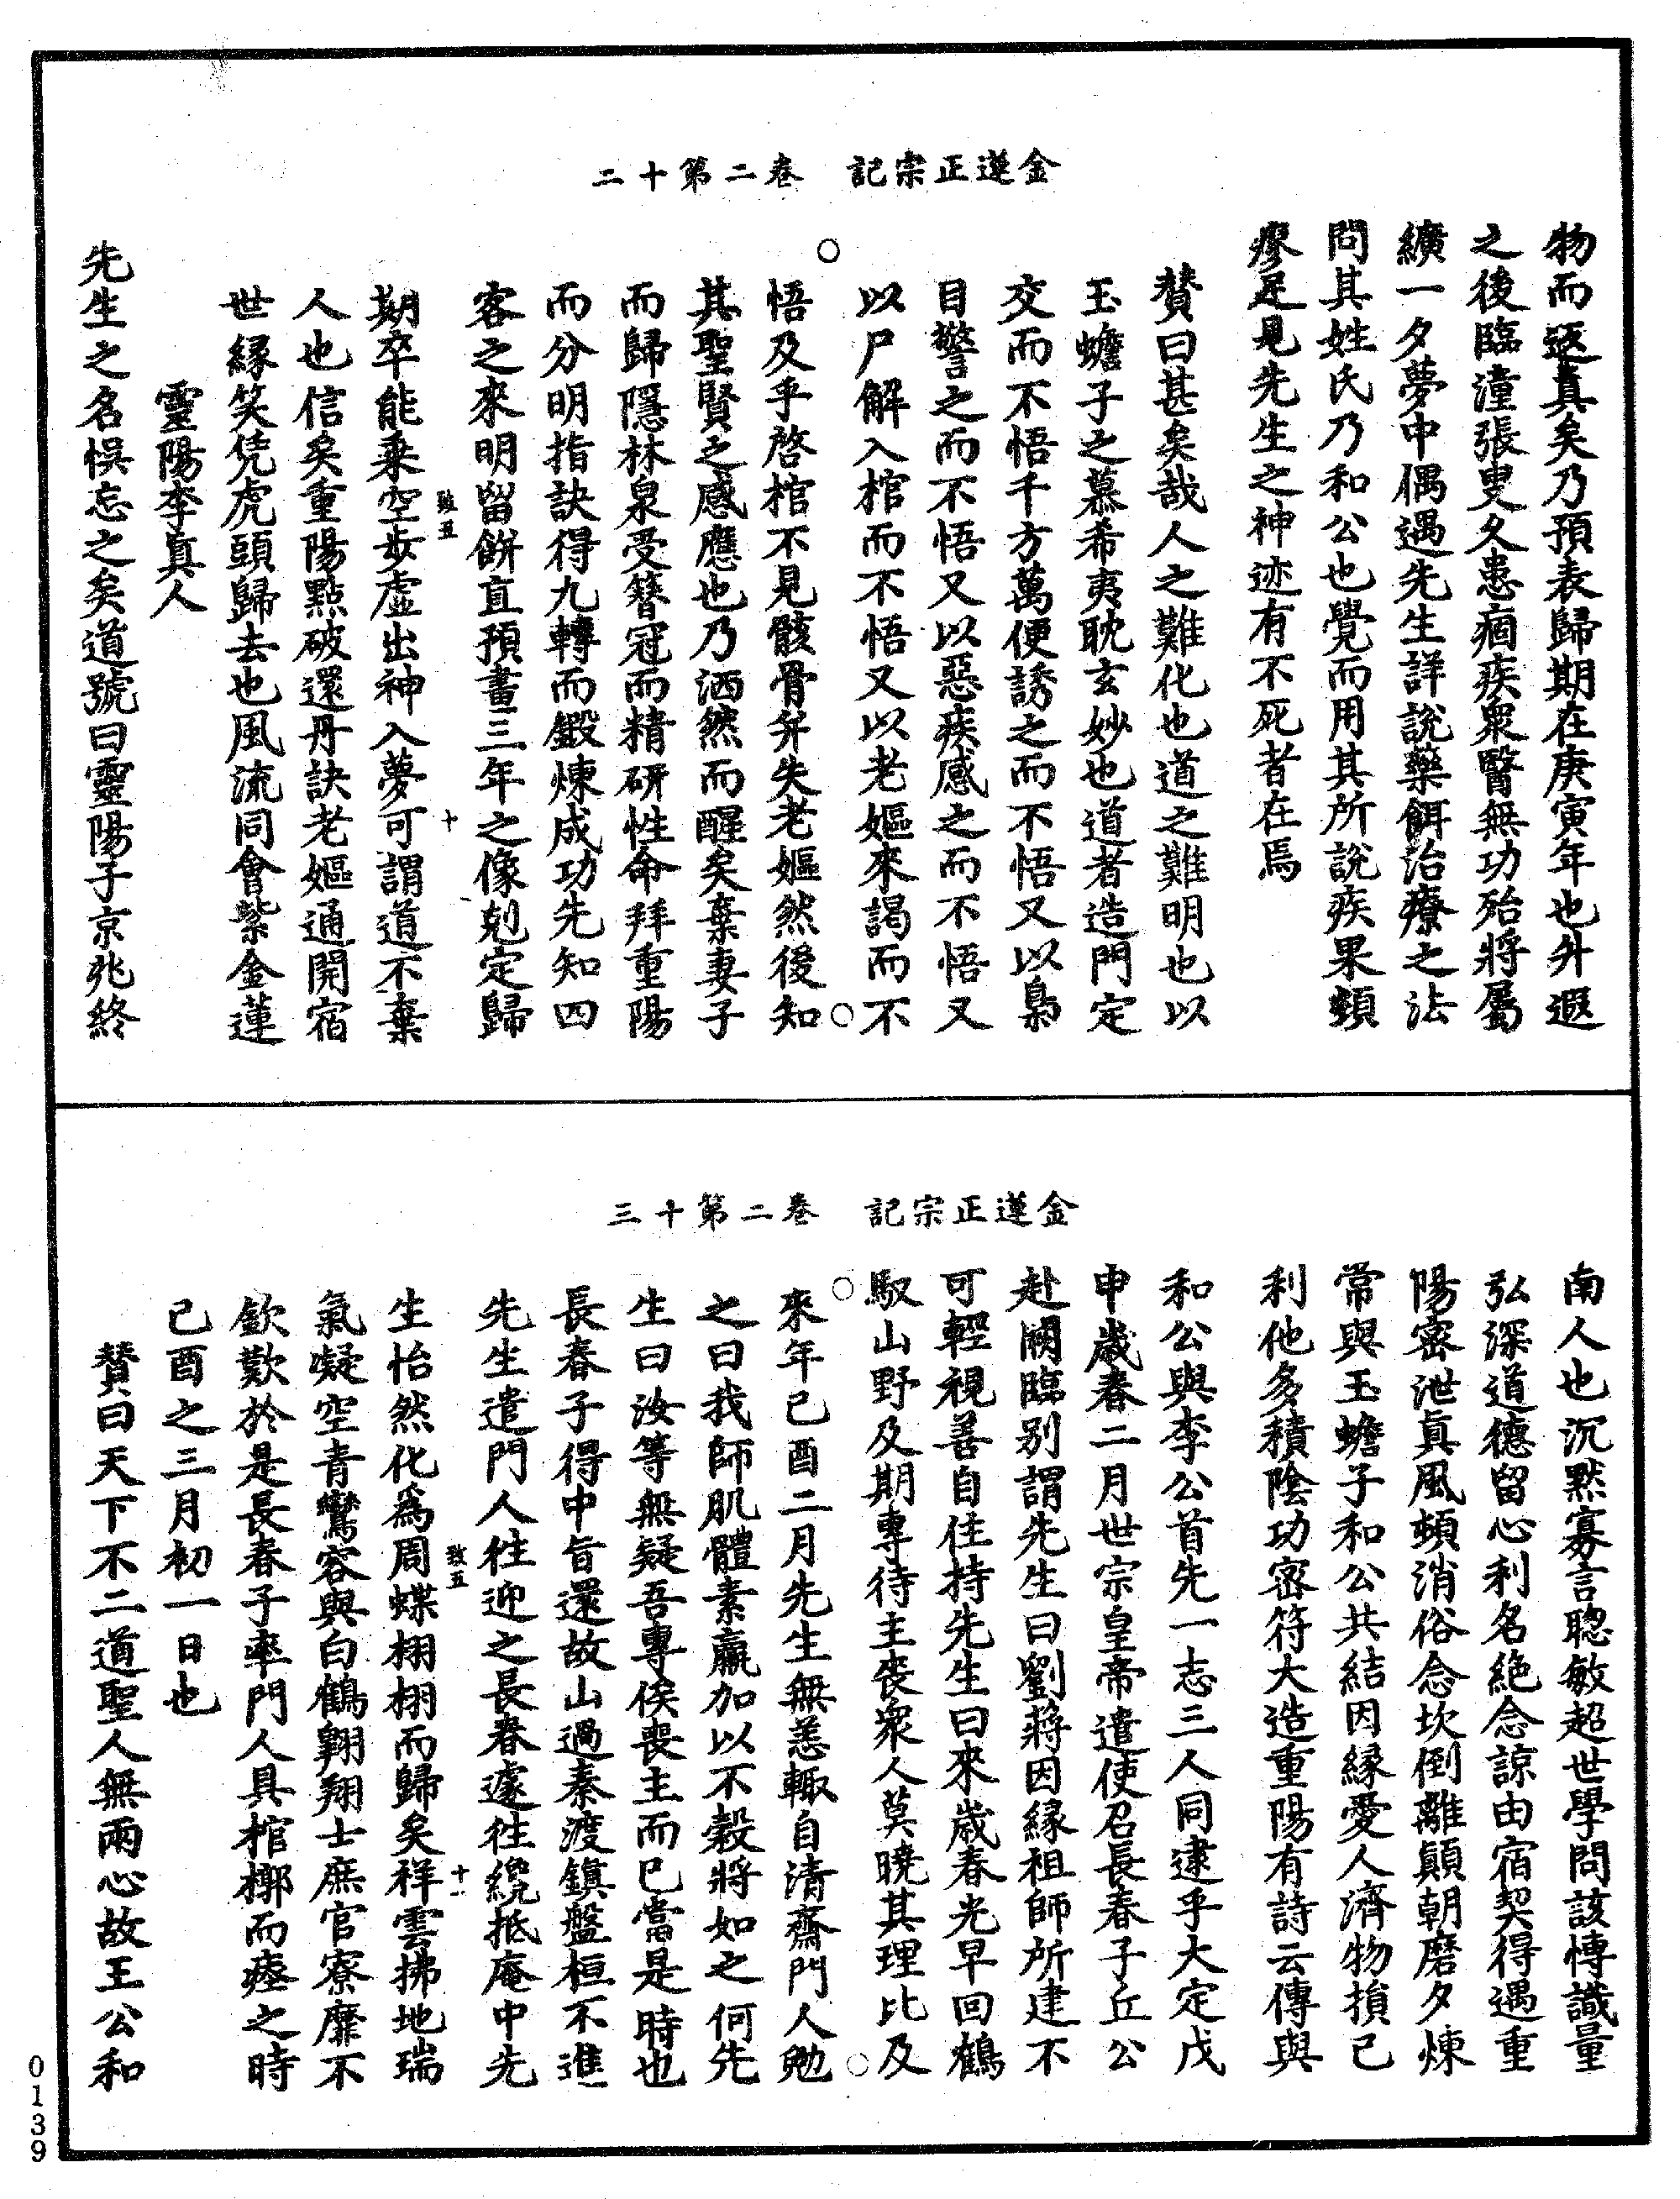 金蓮正宗記　卷二第十二
物而返真矣乃預表歸期在庚寅年也升遐
之後臨潼張叟久患痼疾衆醫無功殆將屬
纊一夕夢中偶遇先生詳說藥餌治療之法
問其姓氏乃和公也覺而用其所說疾果頓
瘳足見先生之神迹有不死者在焉
贊曰甚矣哉人之難化也道之難明也以
玉蟾子之慕希夷耽玄妙也道者造門定
交而不悟千方萬便誘之而不悟又以梟
目警之而不悟又以惡疾感之而不悟又
以尸解入棺而不悟又以老嫗來謁而不
悟及乎啓棺不見骸骨弁失老嫗然後知
其聖賢之感應也乃洒然而醒矣棄妻子
而歸隱林泉受簪冠而精研性命拜重陽
而分明指訣得九轉而鍛煉成功先知四
客之來明留餅直預畫三年之像剋定歸
期卒能乘空步虛出神入夢可謂道不棄
人也信矣重陽點破還丹訣老嫗通開宿
世緣笑凭虎頭歸去也風流同會紫金蓮
靈陽李真人
先生之名悞忘之矣道號曰靈陽子京兆終
致五
十
金蓮正宗記　卷二第十三
南人也沉默寡言聰敏超世學問該愽識量
弘深道德留心利名絕念諒由宿契得遇重
陽密泄真風頓消俗念坎倒離顛朝磨夕煉
常與玉蟾子和公共結因緣愛人濟物損己
利他多積陰功密符大造重陽有詩云傳與
和公與李公首先一志三人同逮乎大定戊
申歲春二月世宗皇帝遣使召長春子丘公
赴闕臨别謂先生曰劉蔣因緣祖師所建不
可輕視善自住持先生曰來歲春光早回鶴
馭山野及期專待主喪衆人莫曉其理比及
來年己酉二月先生無恙輙自清齋門人勉
之曰我師肌體素羸加以不穀將如之何先
生曰汝等無疑吾專俟喪主而已當是時也
長春子得中旨還故山過秦渡鎮盤桓不進
先生遣門人往迎之長春遽往纔抵庵中先
生怡然化為周蝶栩栩而歸矣祥雲拂地瑞
氣凝空青鸞容與白鶴翺翔士庶官寮靡不
欽歎於是長春子率門人具棺槨而瘞之時
己酉之三月初一日也
贊曰天下不二道聖人無兩心故王公和
致五
十一
0139